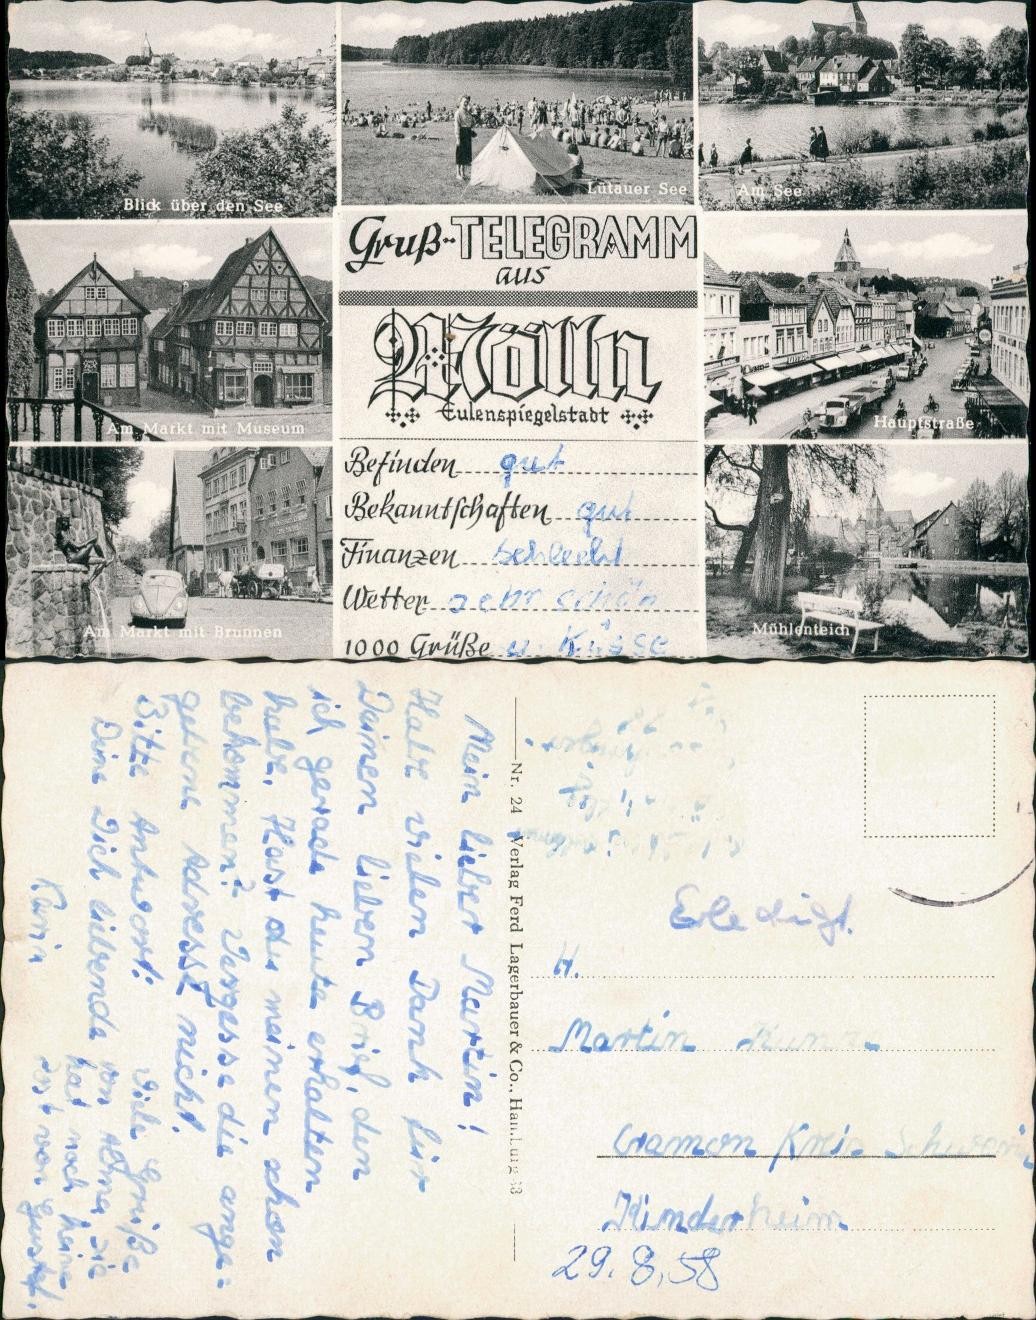 Blick über den See
Lütauer See
Am See
Gruß-TELEGRAMM
aus
Mölln
Eulenspiegelstadt
Am Markt mit Museum
Hauptstraße
Befinden gut
Bekanntschaften gut
Finanzen schlecht
Wetter sehr schön
1000 Grüße u. Küsse
Am Markt mit Brunnen
Mühlenteich
Mein lieber Martin!
Habe vielen Dank für
Deinen lieben Brief, den
ich gerade heute erhalten
habe. Hast du meinen schon
bekommen? Vergesse die ange-
gebene Adresse nicht!
Bitte Antwort! Viele Grüße
Deine Dich liebende von Oma, sie
Karin hat noch keine
Post von Gustaf.
Nr. 24 Verlag Ferd Lagerbauer & Co., Hamburg
Erledigt.
H.
Martin
Cramon Kreis Schwerin
Kinderheim
29.8.58